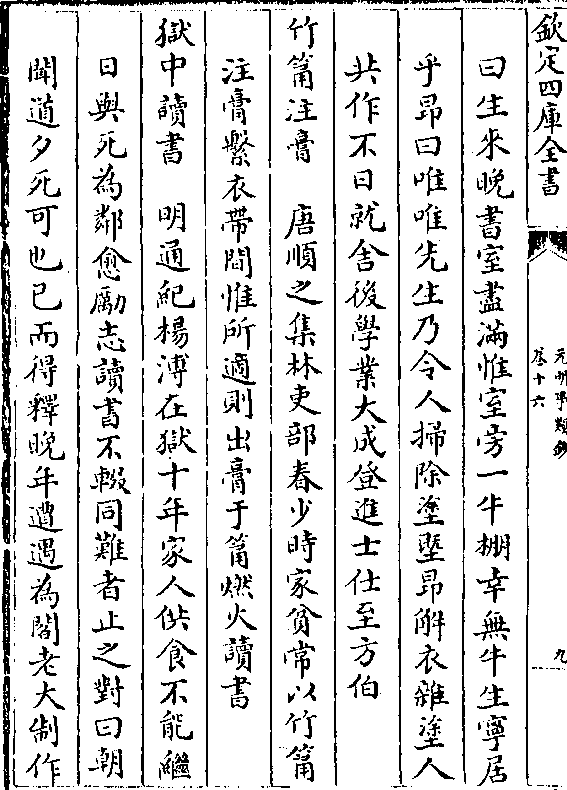 欽定四庫全書
元明事類鈔
卷十六
九
曰生來晚書室盡滿惟室旁一牛棚幸無牛生寧居
乎昂曰唯唯先生乃令人掃除塗塈昂解衣雜塗人
共作不日就舍後學業大成登進士仕至方伯
竹筩注膏　唐順之集林吏部春少時家貧常以竹筩
注膏繫衣帶間惟所適則出膏于筩燃火讀書
獄中讀書　明通紀楊溥在獄十年家人供食不能繼
日與死為鄰愈勵志讀書不輟同難者止之對曰朝
聞道夕死可也已而得釋晚年遭遇為閣老大制作